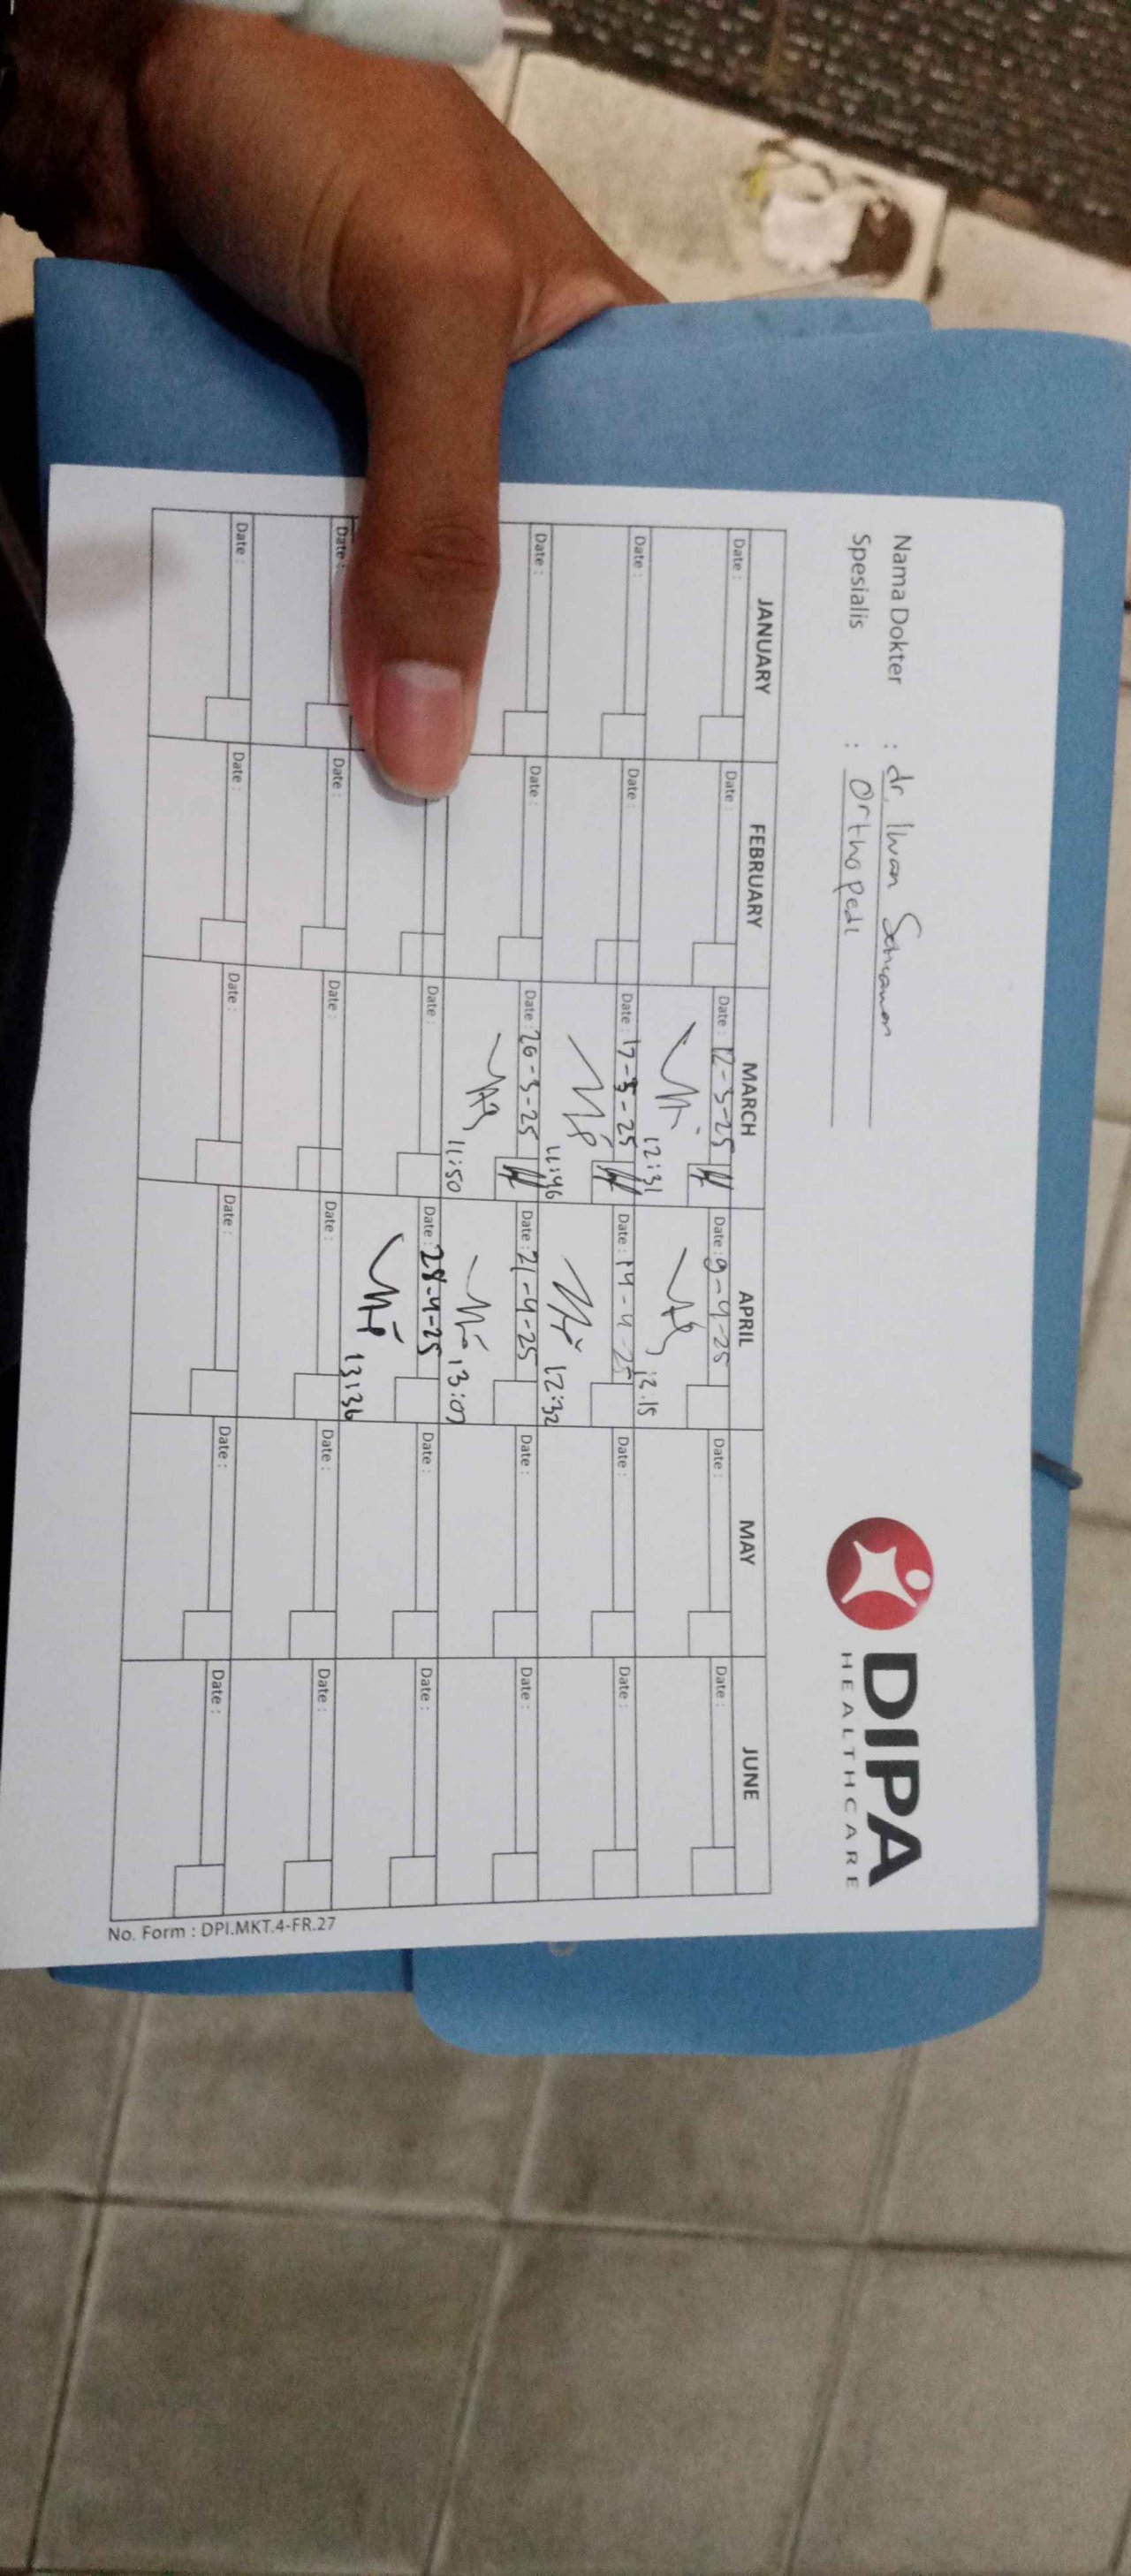 Nama Dokter : dr. Iwan Setiawan
Spesialis : Orthopedi
DIPA
HEALTHCARE
JANUARY FEBRUARY MARCH APRIL MAY JUNE
Date : Date : Date : 12-3-25 Date : 9-4-25 Date : Date :
12:31 13:15
Date : Date : Date : 17-3-25 Date : 14-4-25 Date : Date :
11:46 12:32
Date : Date : Date : 26-3-25 Date : 21-4-25 Date : Date :
11:50 13:07
Date : Date : 28-4-25 Date : Date :
13:36
Date : Date : Date : Date : Date : Date :
Date : Date : Date : Date : Date : Date :
No. Form : DPI.MKT.4-FR.27